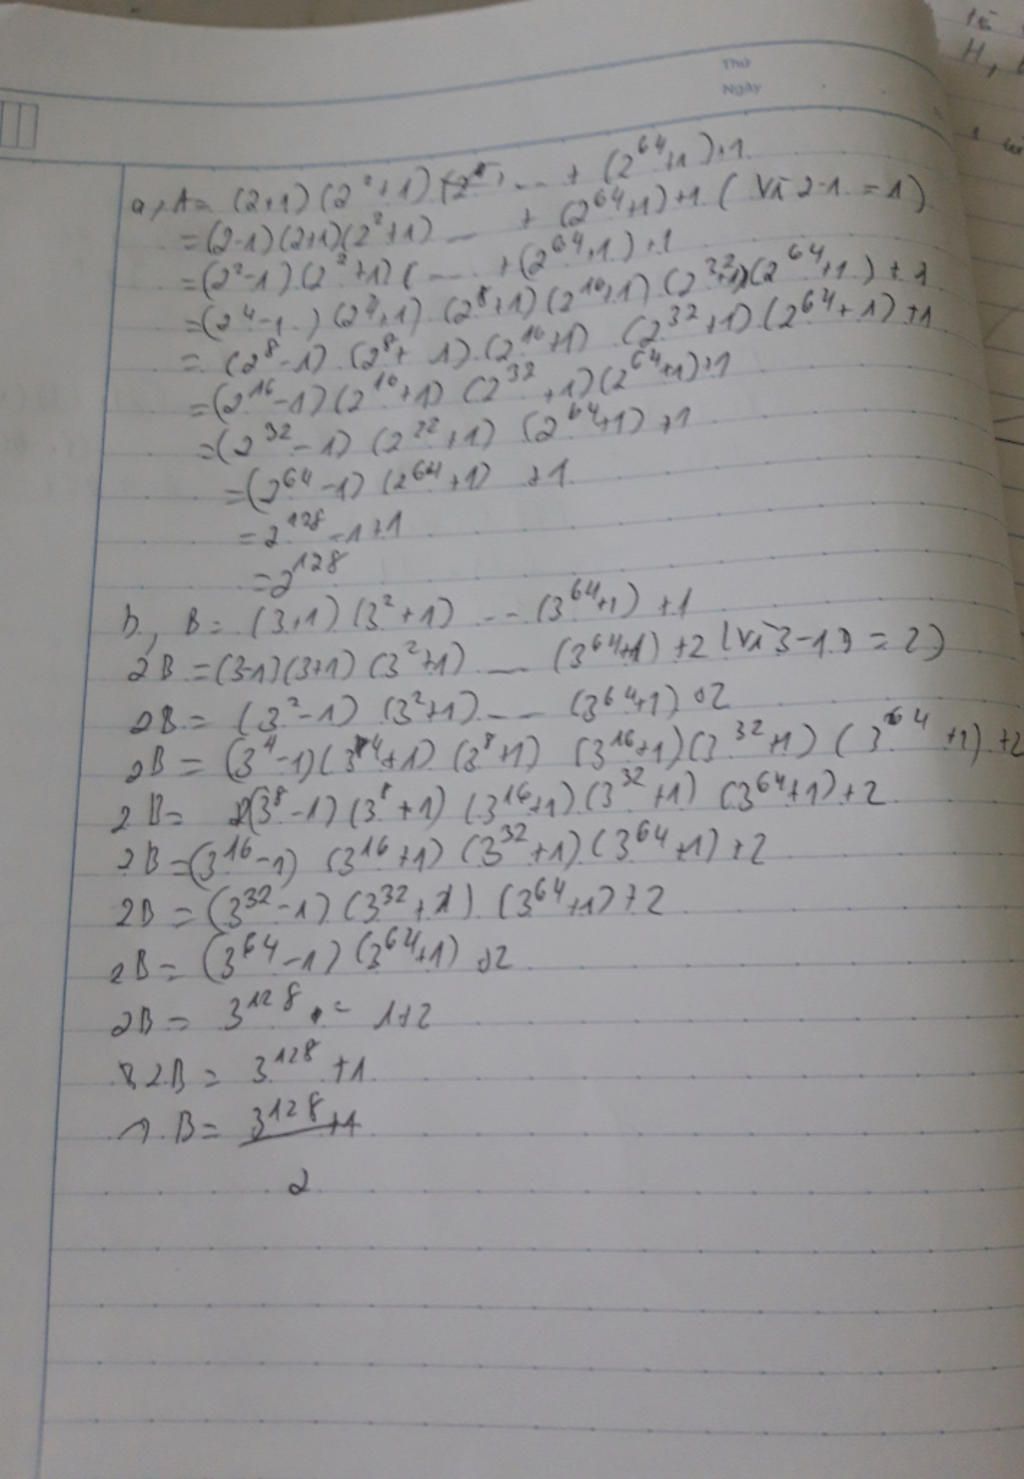 tế
H,
Thứ
Ngày
a, A = (2+1)(2²+1) ... + (2⁶⁴+1)+1
= (2-1)(2+1)(2²+1) ... + (2⁶⁴+1)+1 (Vì 2-1 = 1)
= (2²-1)(2²+1)( ... +(2⁶⁴+1)+1
= (2⁴-1)(2⁴+1)(2⁸+1)(2¹⁶+1)(2³²+1)(2⁶⁴+1)+1
= (2⁸-1)(2⁸+1)(2¹⁶+1)(2³²+1)(2⁶⁴+1)+1
= (2¹⁶-1)(2¹⁶+1)(2³²+1)(2⁶⁴+1)+1
= (2³²-1)(2²²+1)(2⁶⁴+1)+1
= (2⁶⁴-1)(2⁶⁴+1)+1
= 2¹²⁸-1+1
= 2¹²⁸
b, B = (3+1)(3²+1) -- (3⁶⁴+1)+1
2B = (3-1)(3+1)(3²+1) ... (3⁶⁴+1)+2 (Vì 3-1 = 2)
2B = (3²-1)(3²+1) ... (3⁶⁴+1)+2
2B = (3⁴-1)(3⁴+1)(3⁸+1)(3¹⁶+1)(3³²+1)(3⁶⁴+1)+2
2B = (3⁸-1)(3⁸+1)(3¹⁶+1)(3³²+1)(3⁶⁴+1)+2
2B = (3¹⁶-1)(3¹⁶+1)(3³²+1)(3⁶⁴+1)+2
2B = (3³²-1)(3³²+1)(3⁶⁴+1)+2
2B = (3⁶⁴-1)(3⁶⁴+1)+2
2B = 3¹²⁸ - 1+2
2B = 3¹²⁸+1
B = 3¹²⁸+1
2